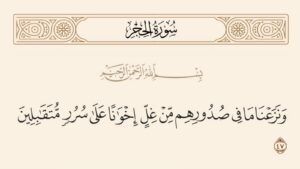 سُورَةُ الحِجْرِ
بِسْمِ اللَّهِ الرَّحْمَٰنِ الرَّحِيمِ
وَنَزَعْنَا مَا فِي صُدُورِهِم مِّنْ غِلٍّ إِخْوَانًا عَلَىٰ سُرُرٍ مُّتَقَابِلِينَ
٤٧